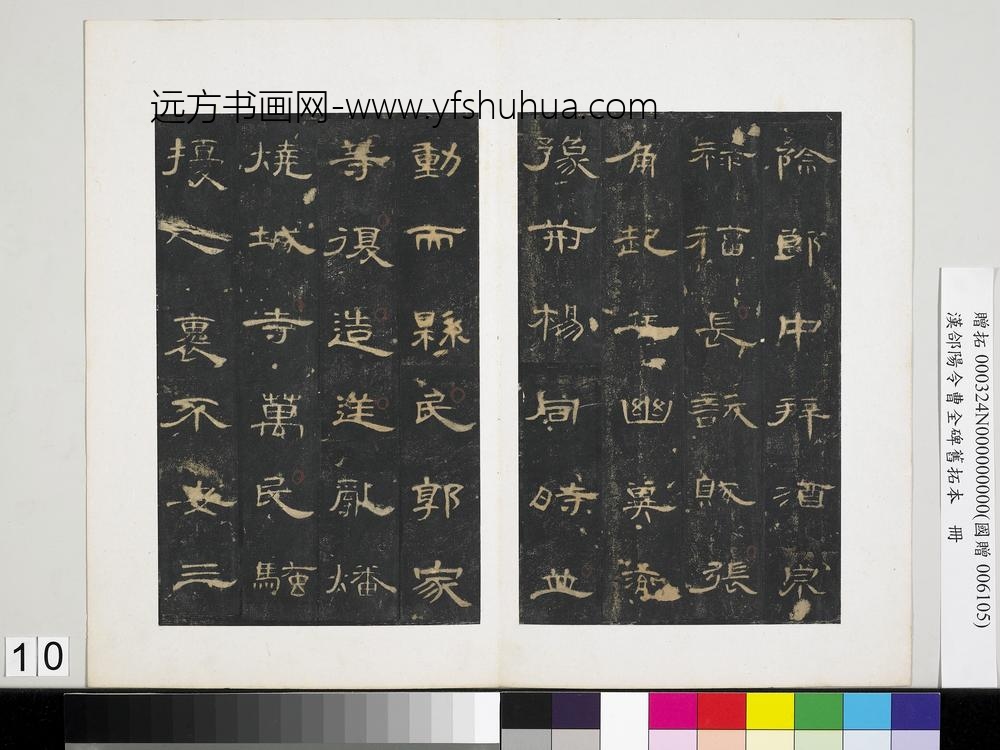 远方书画网-www.yfshuhua.com
除郎中拜酒泉
祿福長訞賊張
角起兵幽冀兗
豫荊楊同時並
動而縣民郭家
等復造逆亂燔
燒城寺萬民騷
擾人裹不安三
贈拓 000324N000000000(國贈 006105)
漢郃陽令曹全碑舊拓本 冊
10